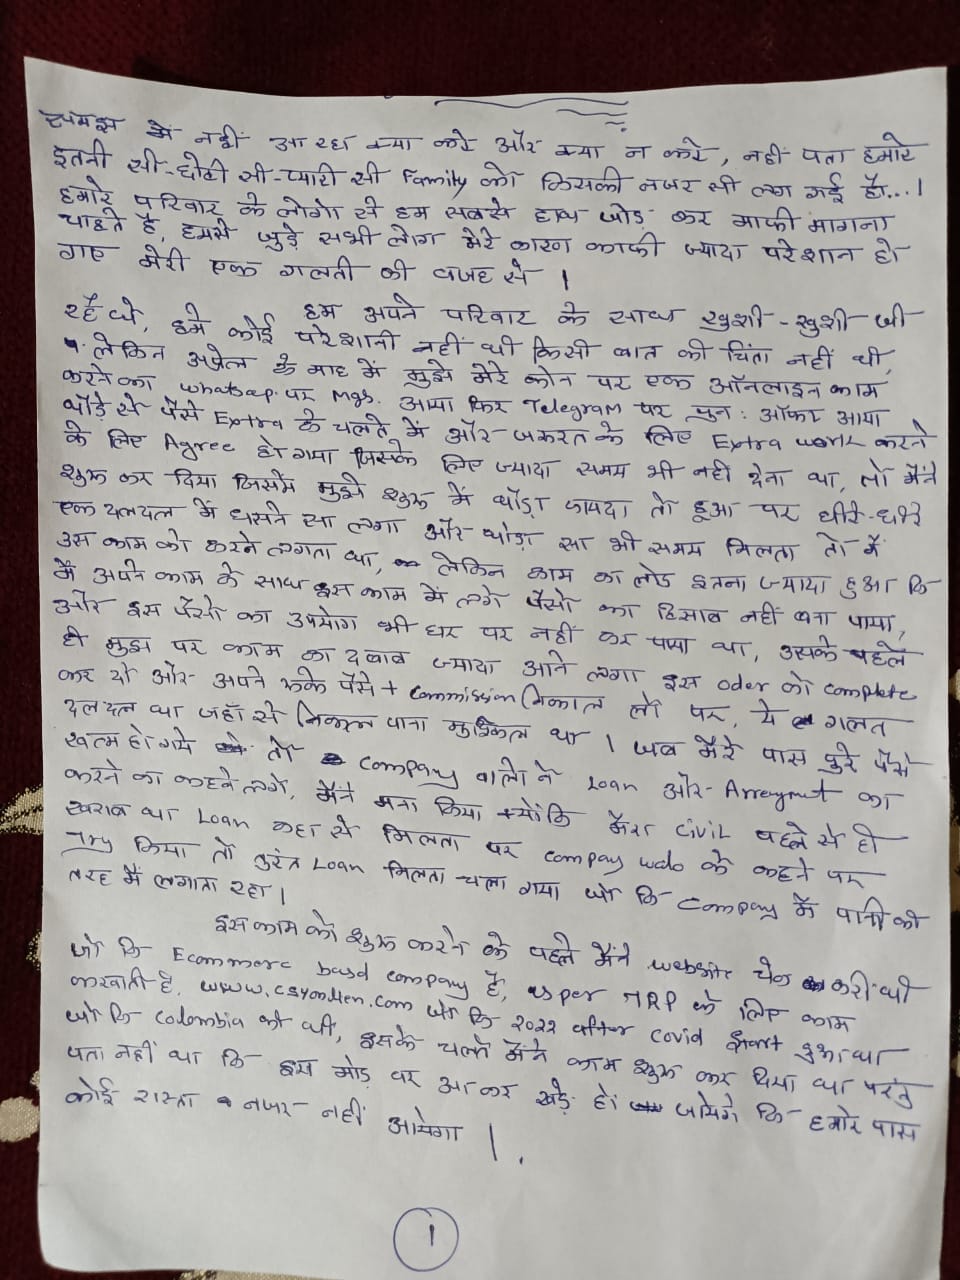 समझ में नहीं आ रहा क्या करे और क्या न करे, नहीं पता हमारे
इतनी सी-छोटी सी-प्यारी सी Family को किसकी नजर सी लग गई है...।
हमारे परिवार के लोगो से हम सबसे हाथ जोड़ कर माफी मागना
चाहते है, हमसे जुड़े सभी लोग मेरे कारण काफी ज्यादा परेशान हो
गए मेरी एक गलती की वजह से ।
हम अपने परिवार के साथ खुशी-खुशी जी
रहे थे, हमे कोई परेशानी नहीं थी किसी बात की चिंता नहीं थी,
लेकिन अप्रेल के माह में मुझे मेरे फोन पर एक ऑनलाइन काम
करने का whatsap पर Mgs. आया फिर Telegram पर पुन: ऑफर आया
थोड़े से पैसे Extra के चलते में और जरूरत के लिए Extra work करने
के लिए Agree हो गया जिसके लिए ज्यादा समय भी नही देना था, तो मैंने
शुरू कर दिया जिसमें मुझे शुरू में थोड़ा फायदा तो हुआ पर धीरे-धीरे
एक दलदल में धसने सा लगा और थोड़ा सा भी समय मिलता तो मैं
उस काम को करने लगता था, लेकिन काम का लोड इतना ज्यादा हुआ कि
मैं अपने काम के साथ इस काम में लगे पैसो का हिसाब नहीं बना पाया,
और इस पैसो का उपयोग भी घर पर नहीं कर पाया था, उसके पहले
ही मुझ पर काम का दबाव ज्यादा आने लगा इस oder को complete
कर दो और अपने रुके पैसे + commission निकाल लो पर, ये गलत
दलदल था जहाँ से निकल पाना मुश्किल था । जब मेरे पास पुरे पैसे
खत्म हो गये तो company वालो ने Loan और Arreymnt का
करने का कहने लगे, मैंने मना किया क्योंकि मेरा civil पहले से ही
खराब था Loan कहा से मिलता पर compay walo के कहने पर
Try किया तो तुरंत Loan मिलता चला गया जो कि company में पानी की
तरह मैं लगाता रहा ।
इस काम को शुरू करने के पहले मैंने website चेक करी थी
जो कि Ecommerc based company है, as per TRP के लिए काम
करवाती है. www.csyonllen.com जो कि 2022 after covid start हुआ था
जो कि colombia की थी, इसके चलते मैंने काम शुरू कर दिया था परंतु
पता नहीं था कि इस मोड़ पर आ कर खड़े हो जायेगे कि हमारे पास
कोई रास्ता नजर नहीं आयेगा ।
1